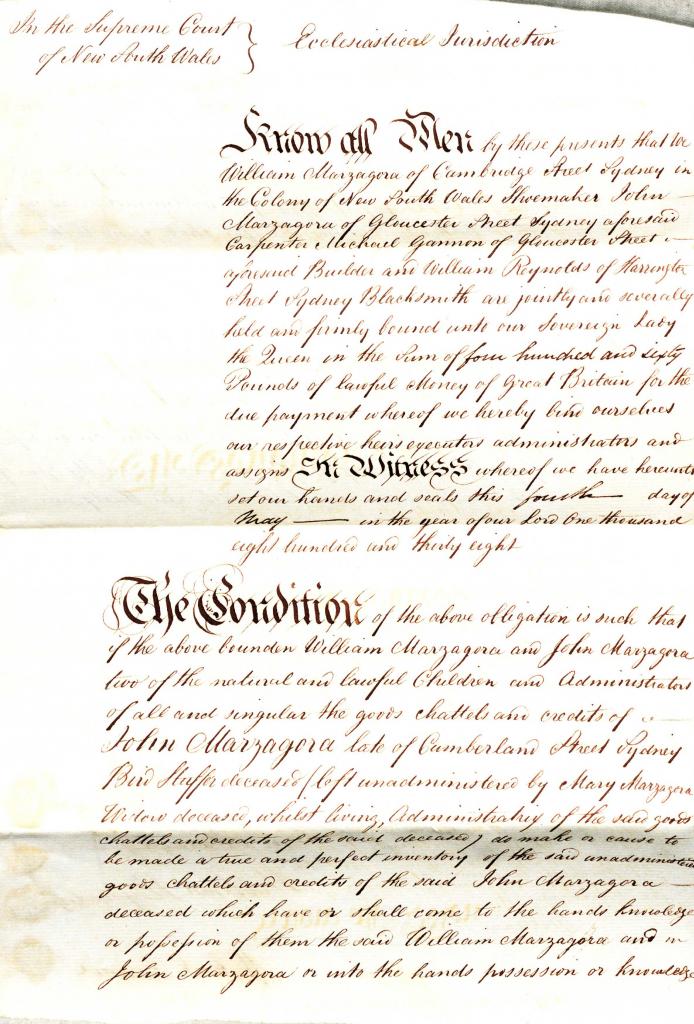 In the Supreme Court } Ecclesiastical Jurisdiction
of New South Wales
Know all Men by these presents that We
William Marzagora of Cambridge Street Sydney in
the Colony of New South Wales Shoemaker John
Marzagora of Gloucester Street Sydney aforesaid
Carpenter Michael Gannon of Gloucester Street
aforesaid Builder and William Reynolds of Harrington
Street Sydney Blacksmith are jointly and severally
held and firmly bound unto our Sovereign Lady
the Queen in the Sum of four hundred and sixty
Pounds of lawful Money of Great Britain for the
due payment whereof we hereby bind ourselves
our respective heirs executors administrators and
assigns In Witness whereof we have hereunto
set our hands and seals this fourth day of
May — in the year of our Lord One thousand
eight hundred and thirty eight
The Condition of the above obligation is such that
if the above bounden William Marzagora and John Marzagora
two of the natural and lawful Children and Administrators
of all and singular the goods chattels and credits of
John Marzagora late of Cumberland Street Sydney
Bird Stuffer deceased (left unadministered by Mary Marzagora
Widow deceased, whilst living, Administratrix of the said goods
chattels and credits of the said deceased) do make or cause to
be made a true and perfect inventory of the said unadministered
goods chattels and credits of the said John Marzagora —
deceased which have or shall come to the hands knowledge
or possession of them the said William Marzagora and
John Marzagora or into the hands possession or knowledge